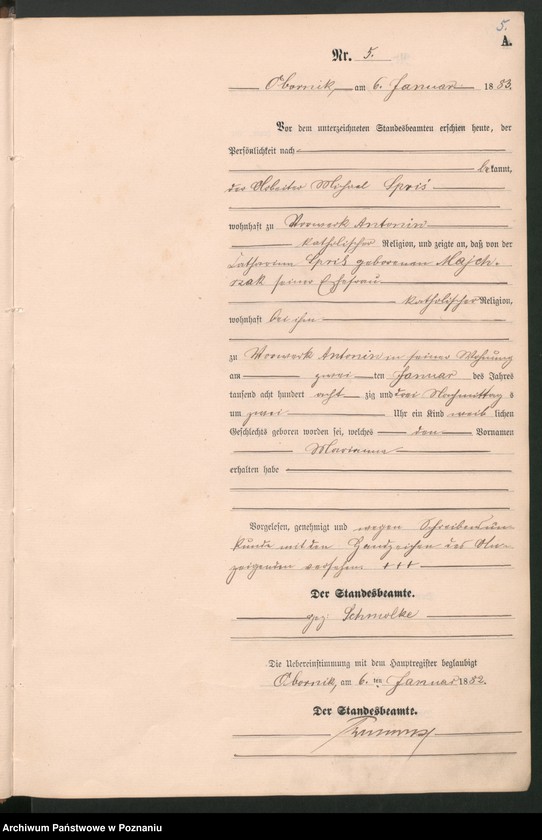 5.
A.
Nr. 5.
Obornik, am 6. Januar 1883.
Vor dem unterzeichneten Standesbeamten erschien heute, der
Persönlichkeit nach
bekannt,
der Arbeiter Michael Spris
wohnhaft zu Vorwerk Antonin
katholischer Religion, und zeigte an, daß von der
Catharina Spris geborenen Majch-
rzak seiner Ehefrau
katholischer Religion,
wohnhaft bei ihm
zu Vorwerk Antonin in seiner Wohnung
am zwei ten Januar des Jahres
tausend acht hundert acht zig und drei Nachmittag s
um zwei Uhr ein Kind weib lichen
Geschlechts geboren worden sei, welches den Vornamen
Marianna
erhalten habe
Vorgelesen, genehmigt und wegen Schreibensun-
kunde mit den Handzeichen des An-
zeigenden versehen. +++
Der Standesbeamte.
gez. Schmolke
Die Uebereinstimmung mit dem Hauptregister beglaubigt
Obornik, am 6. ten Januar 1882.
Der Standesbeamte.
Archiwum Państwowe w Poznaniu